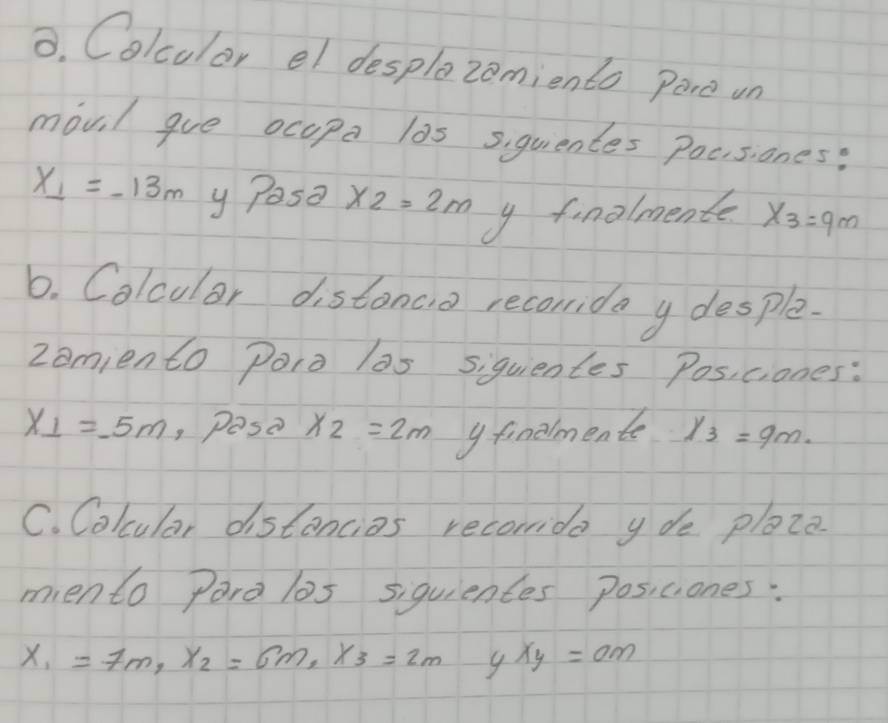 a. Calcular el desplazamiento para un
móvil que ocupa las siguientes Pocisiones:
X1 = -13m y Pasa X2 = 2m y finalmente X3 = 9m
b. Calcular distancia recorrida y despla-
zamiento para las siguientes Posiciones:
X1 = -5m, pasa X2 = 2m y finalmente X3 = 9m.
C. Calcular distancias recorrida y de plaza
miento Para las siguientes posiciones:
X1 = 7m, X2 = 6m, X3 = 2m y Xy = 0m